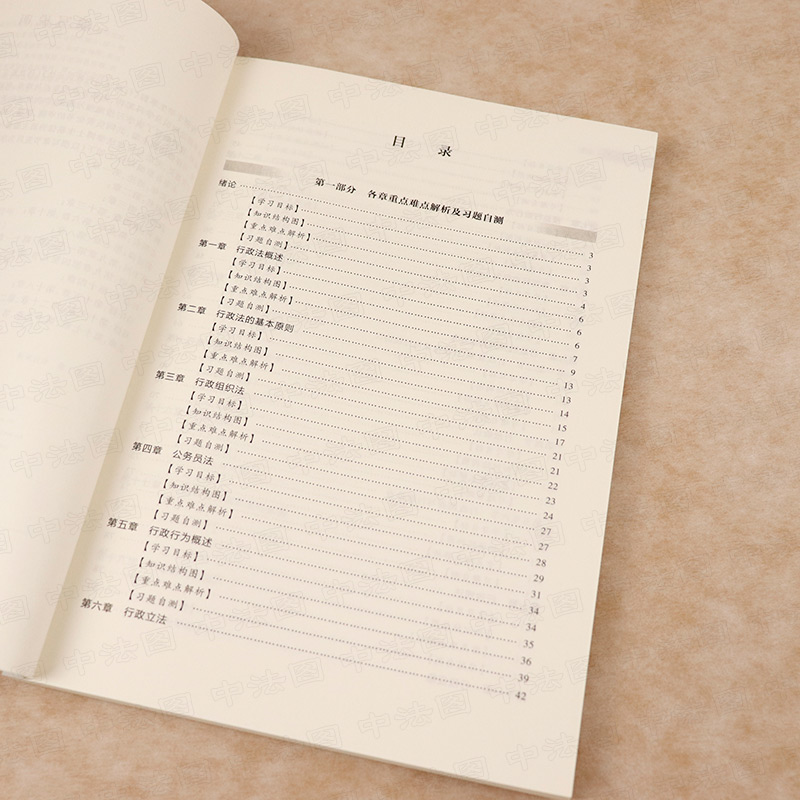 目 录
第一部分 各章重点难点解析及习题自测
绪论 3
【学习目标】 3
【知识结构图】 3
【重点难点解析】 3
【习题自测】 4
第一章 行政法概述 6
【学习目标】 6
【知识结构图】 6
【重点难点解析】 7
【习题自测】 9
第二章 行政法的基本原则 13
【学习目标】 13
【知识结构图】 14
【重点难点解析】 15
【习题自测】 17
第三章 行政组织法 21
【学习目标】 21
【知识结构图】 22
【重点难点解析】 23
【习题自测】 24
第四章 公务员法 27
【学习目标】 27
【知识结构图】 28
【重点难点解析】 29
【习题自测】 31
第五章 行政行为概述 34
【学习目标】 34
【知识结构图】 35
【重点难点解析】 36
【习题自测】 39
第六章 行政立法 42
中法图